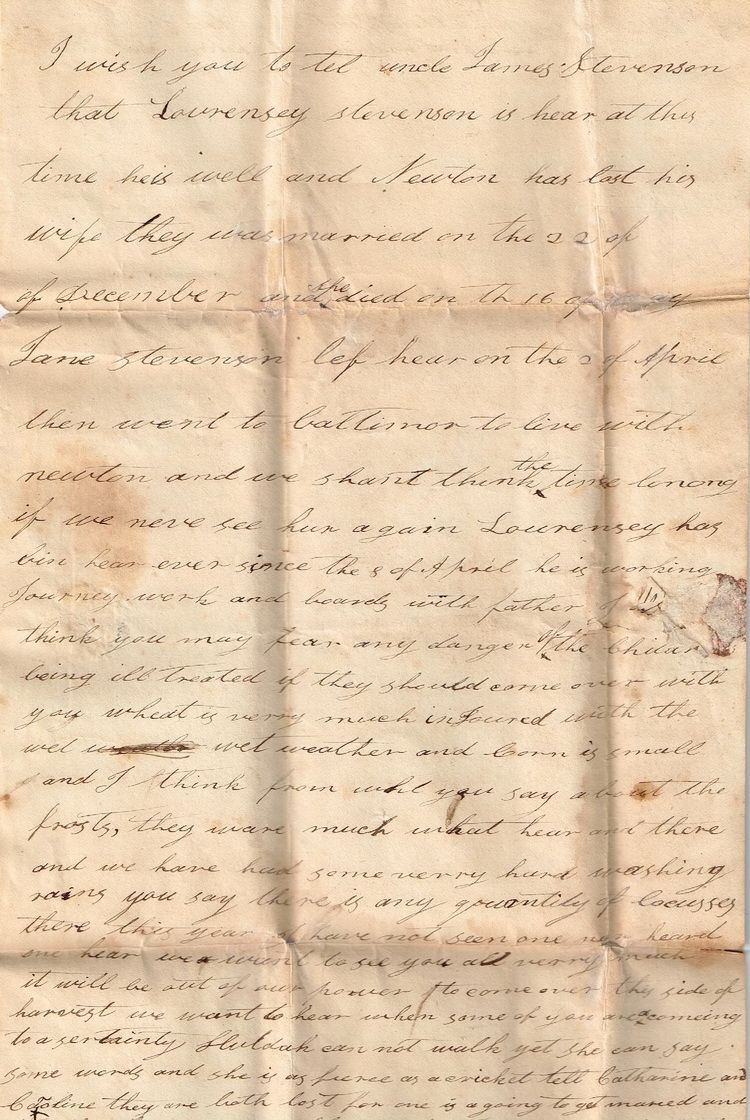 I wish you to tel uncle James Stevenson
that Lourensey stevenson is hear at this
time heis well and Newton has lost his
wife they was married on the 22 of
of December and she died on th 16 of
Jane stevenson lef hear on the 2 of April
then went to baltimor to live with
newton and we shant think the time lonong
if we neve see hur again Lourensey has
bin hear ever since the of April he is working
Journey work and boards with father I
think you may fear any danger of the Childar
being ill treated if they should come over with
you wheat is verry much inJoured with the
wet wet weather and Corn is small
and I think from wht you say about the
frosts, they ware much what hear and there
and we have had some verry hard washing
rains you say there is any quantity of Locusses
there this year I have not seen one nor heard
one hear we want to see you all verry much
it will be out of our power to come over this side of
harvest we want to hear when some of you are a comeing
to a sertainty Huldah can not walk yet she can say
some words and she is as fierce as a cricket tell Catharine and
Caroline they are both lost for one is a going to get maried and